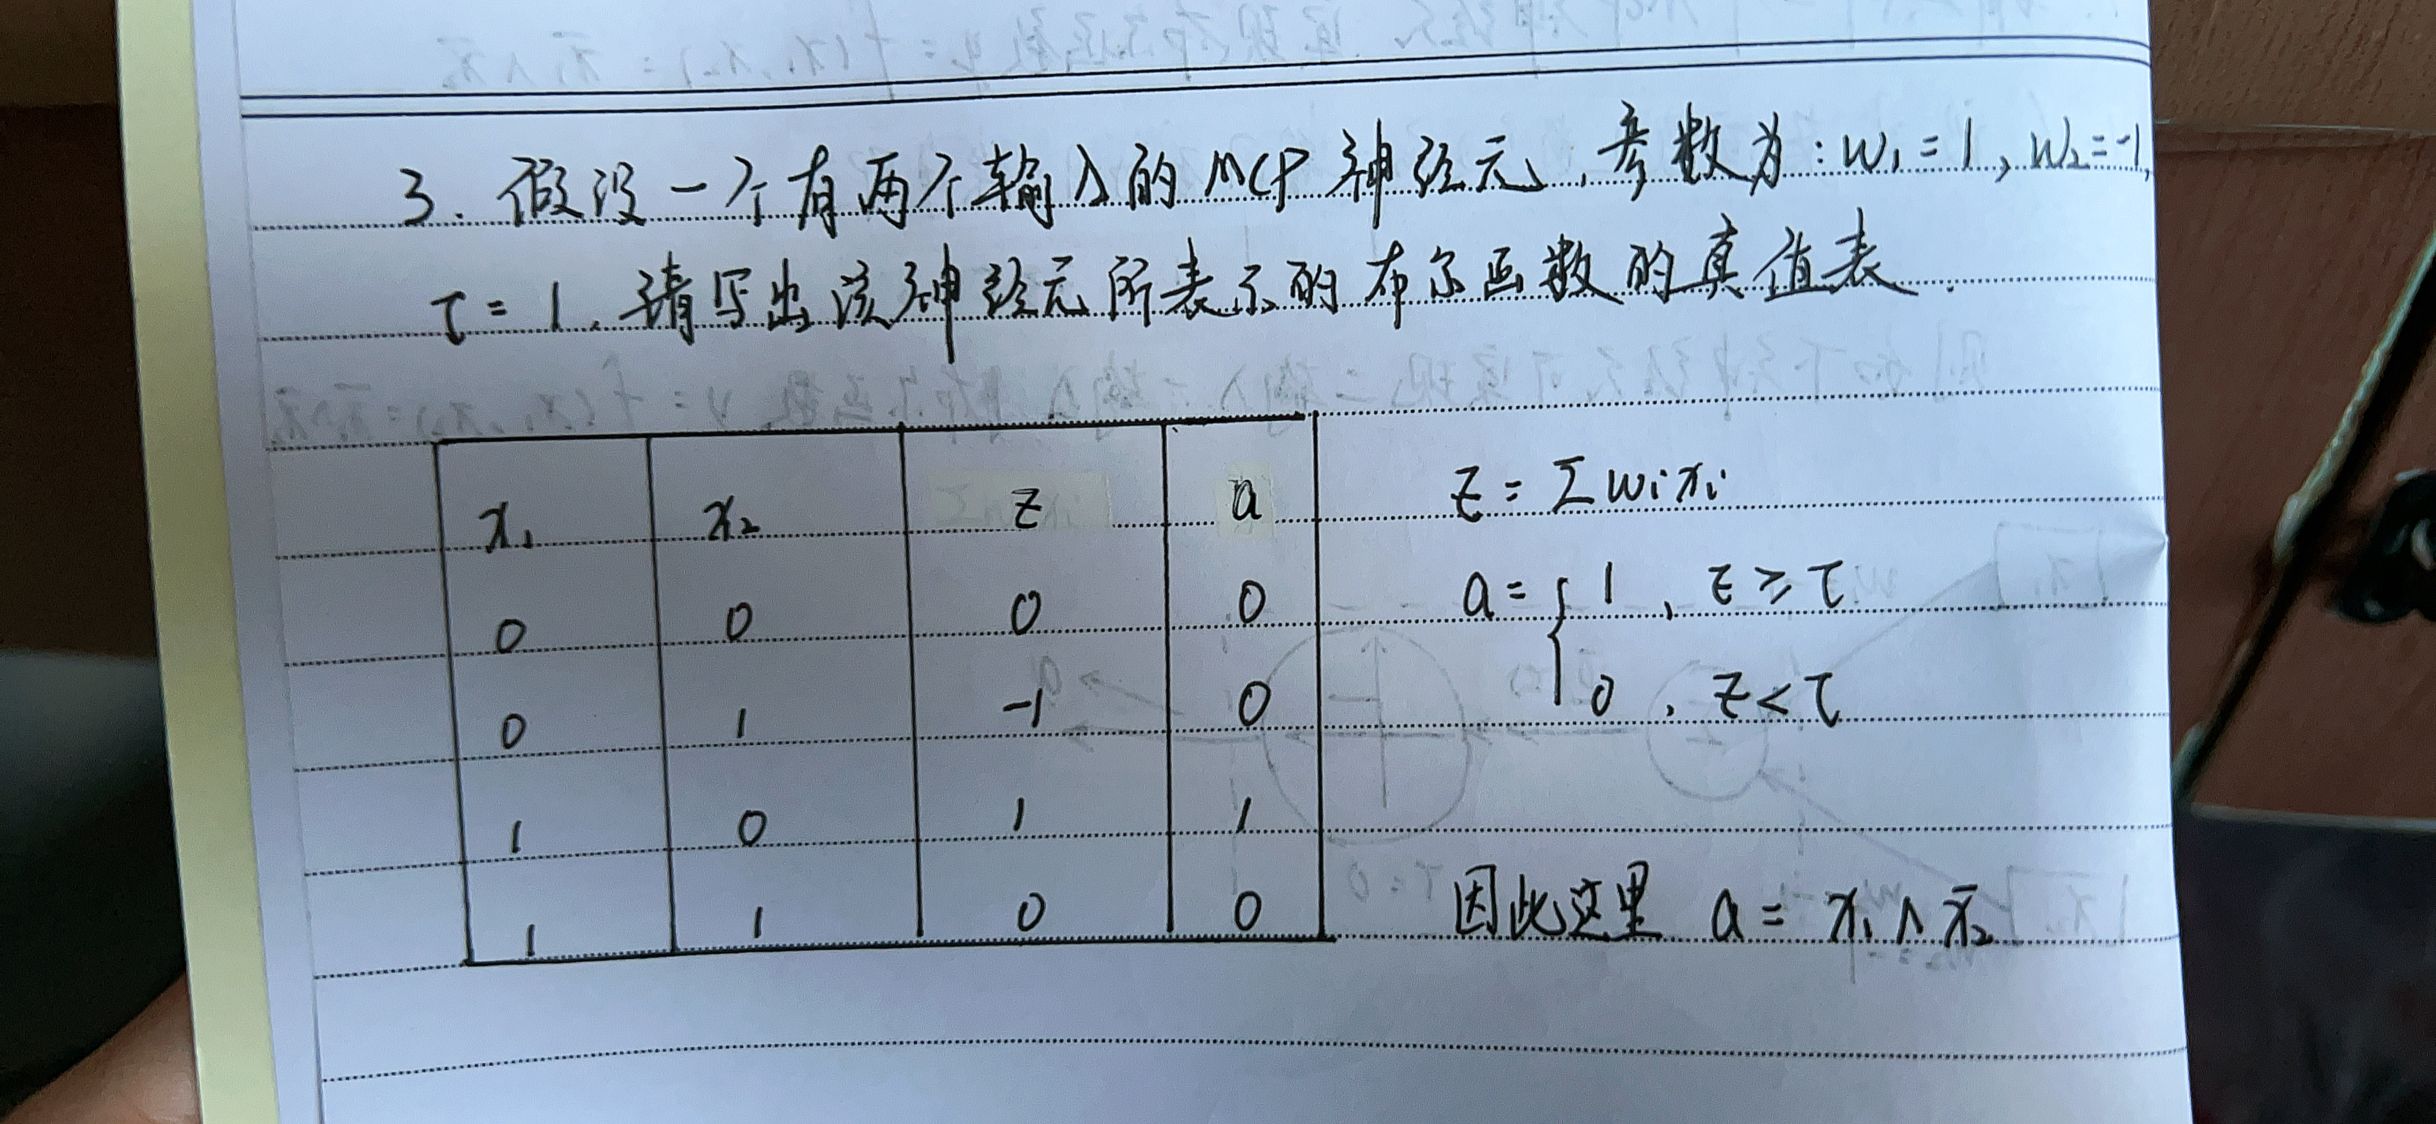 3. 假设一个有两个输入的MCP神经元，参数为：w₁=1，w₂=-1，
τ=1，请写出该神经元所表示的布尔函数的真值表．
x₁ x₂ z a
0 0 0 0
0 1 -1 0
1 0 1 1
1 1 0 0
z = Σwᵢxᵢ
a = { 1，z ≥ τ
0，z < τ
因此这里 a = x₁ ∧ x̄₂